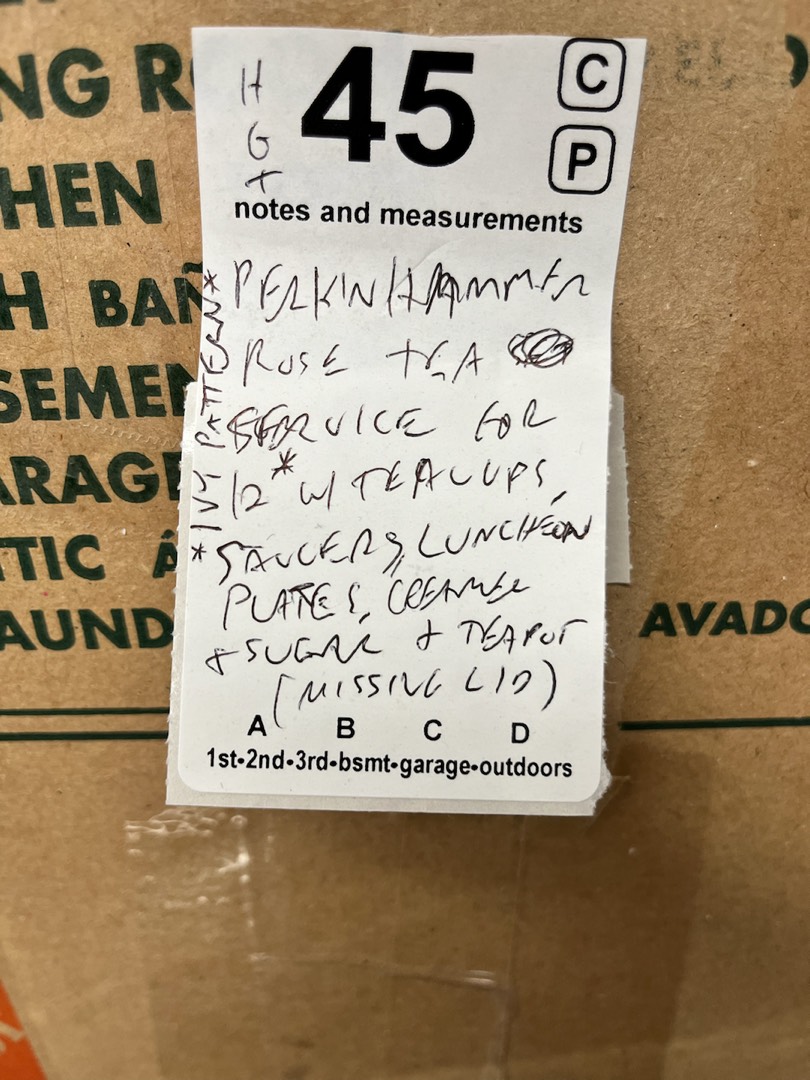 NG R
HEN
H BAÑ
SEMEN
ARAGE
TTIC Á
AUND
AVADO
H
G
T
45
C
P
notes and measurements
PERKIN/HAMMER
ROSE TEA
SERVICE FOR
12* W/ TEACUPS,
SAUCERS, LUNCHEON
PLATES, CREAMER
+ SUGAR + TEAPOT
(MISSING LID)
*IVY PATTERN*
A B C D
1st•2nd•3rd•bsmt•garage•outdoors